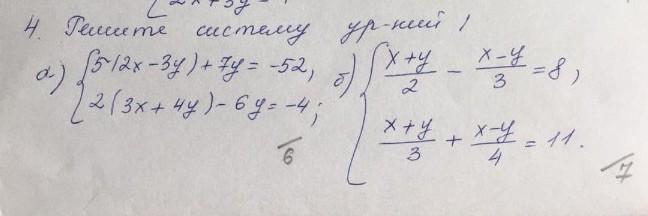 {2x+3y
4. Решите систему ур-ний!
а) {5(2x-3y)+7y=-52,
2(3x+4y)-6y=-4;
/6
б) {(x+y)/2 - (x-y)/3 = 8,
(x+y)/3 + (x-y)/4 = 11.
/7